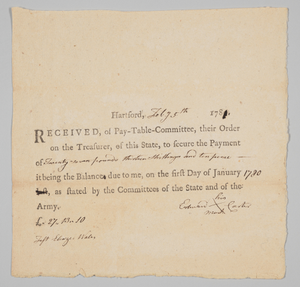 Hartford, Feby 5th 1781
RECEIVED, of Pay-Table-Committee, their Order
on the Treasurer, of this State, to secure the Payment
of Twenty seven pounds thirteen shillings and ten pence
it being the Balance due to me, on the first Day of January 1780
as stated by the Committees of the State and of the
Army.
his
Edward X Carter
mark
£ 27. 13. 10
Test